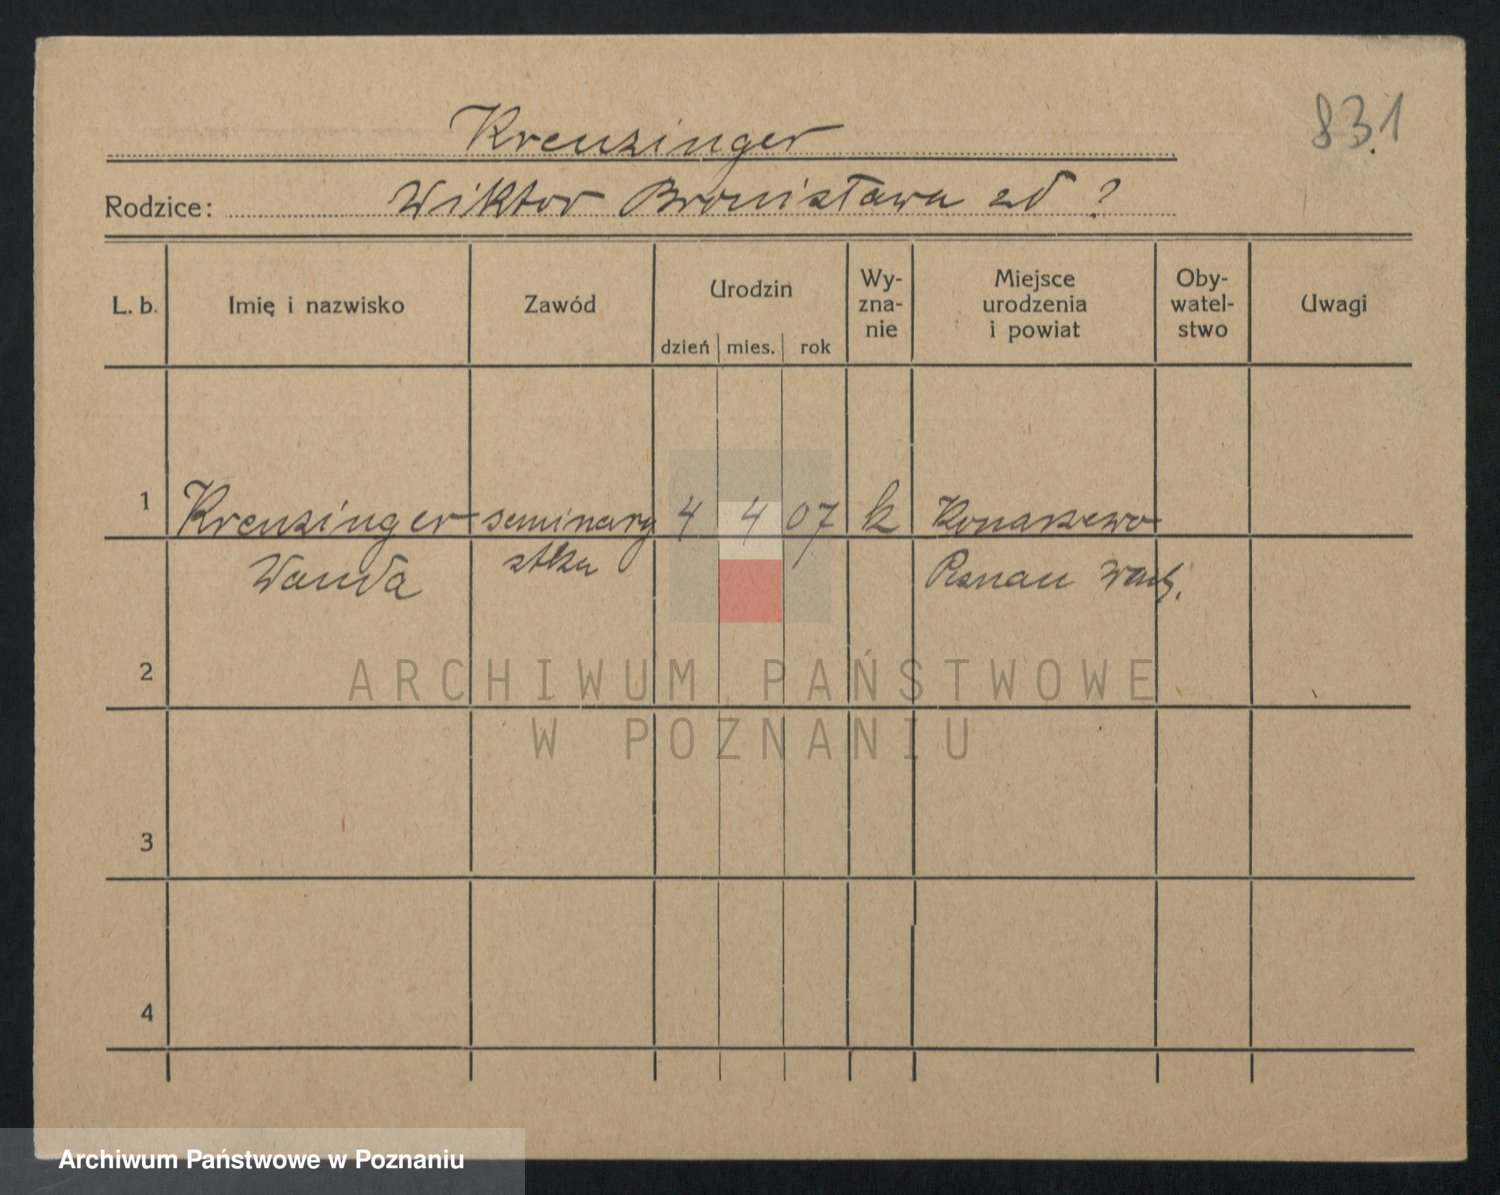 831
Kreuzinger
Rodzice: Wiktor Bronisława zd ?
L. b. Imię i nazwisko Zawód Urodzin dzień mies. rok Wy- zna- nie Miejsce urodzenia i powiat Oby- watel- stwo Uwagi
1 Kreuzinger seminary 4 4 07 k Konarzewo
Wanda stka
2
3
4
ARCHIWUM PAŃSTWOWE
W POZNANIU
Archiwum Państwowe w Poznaniu